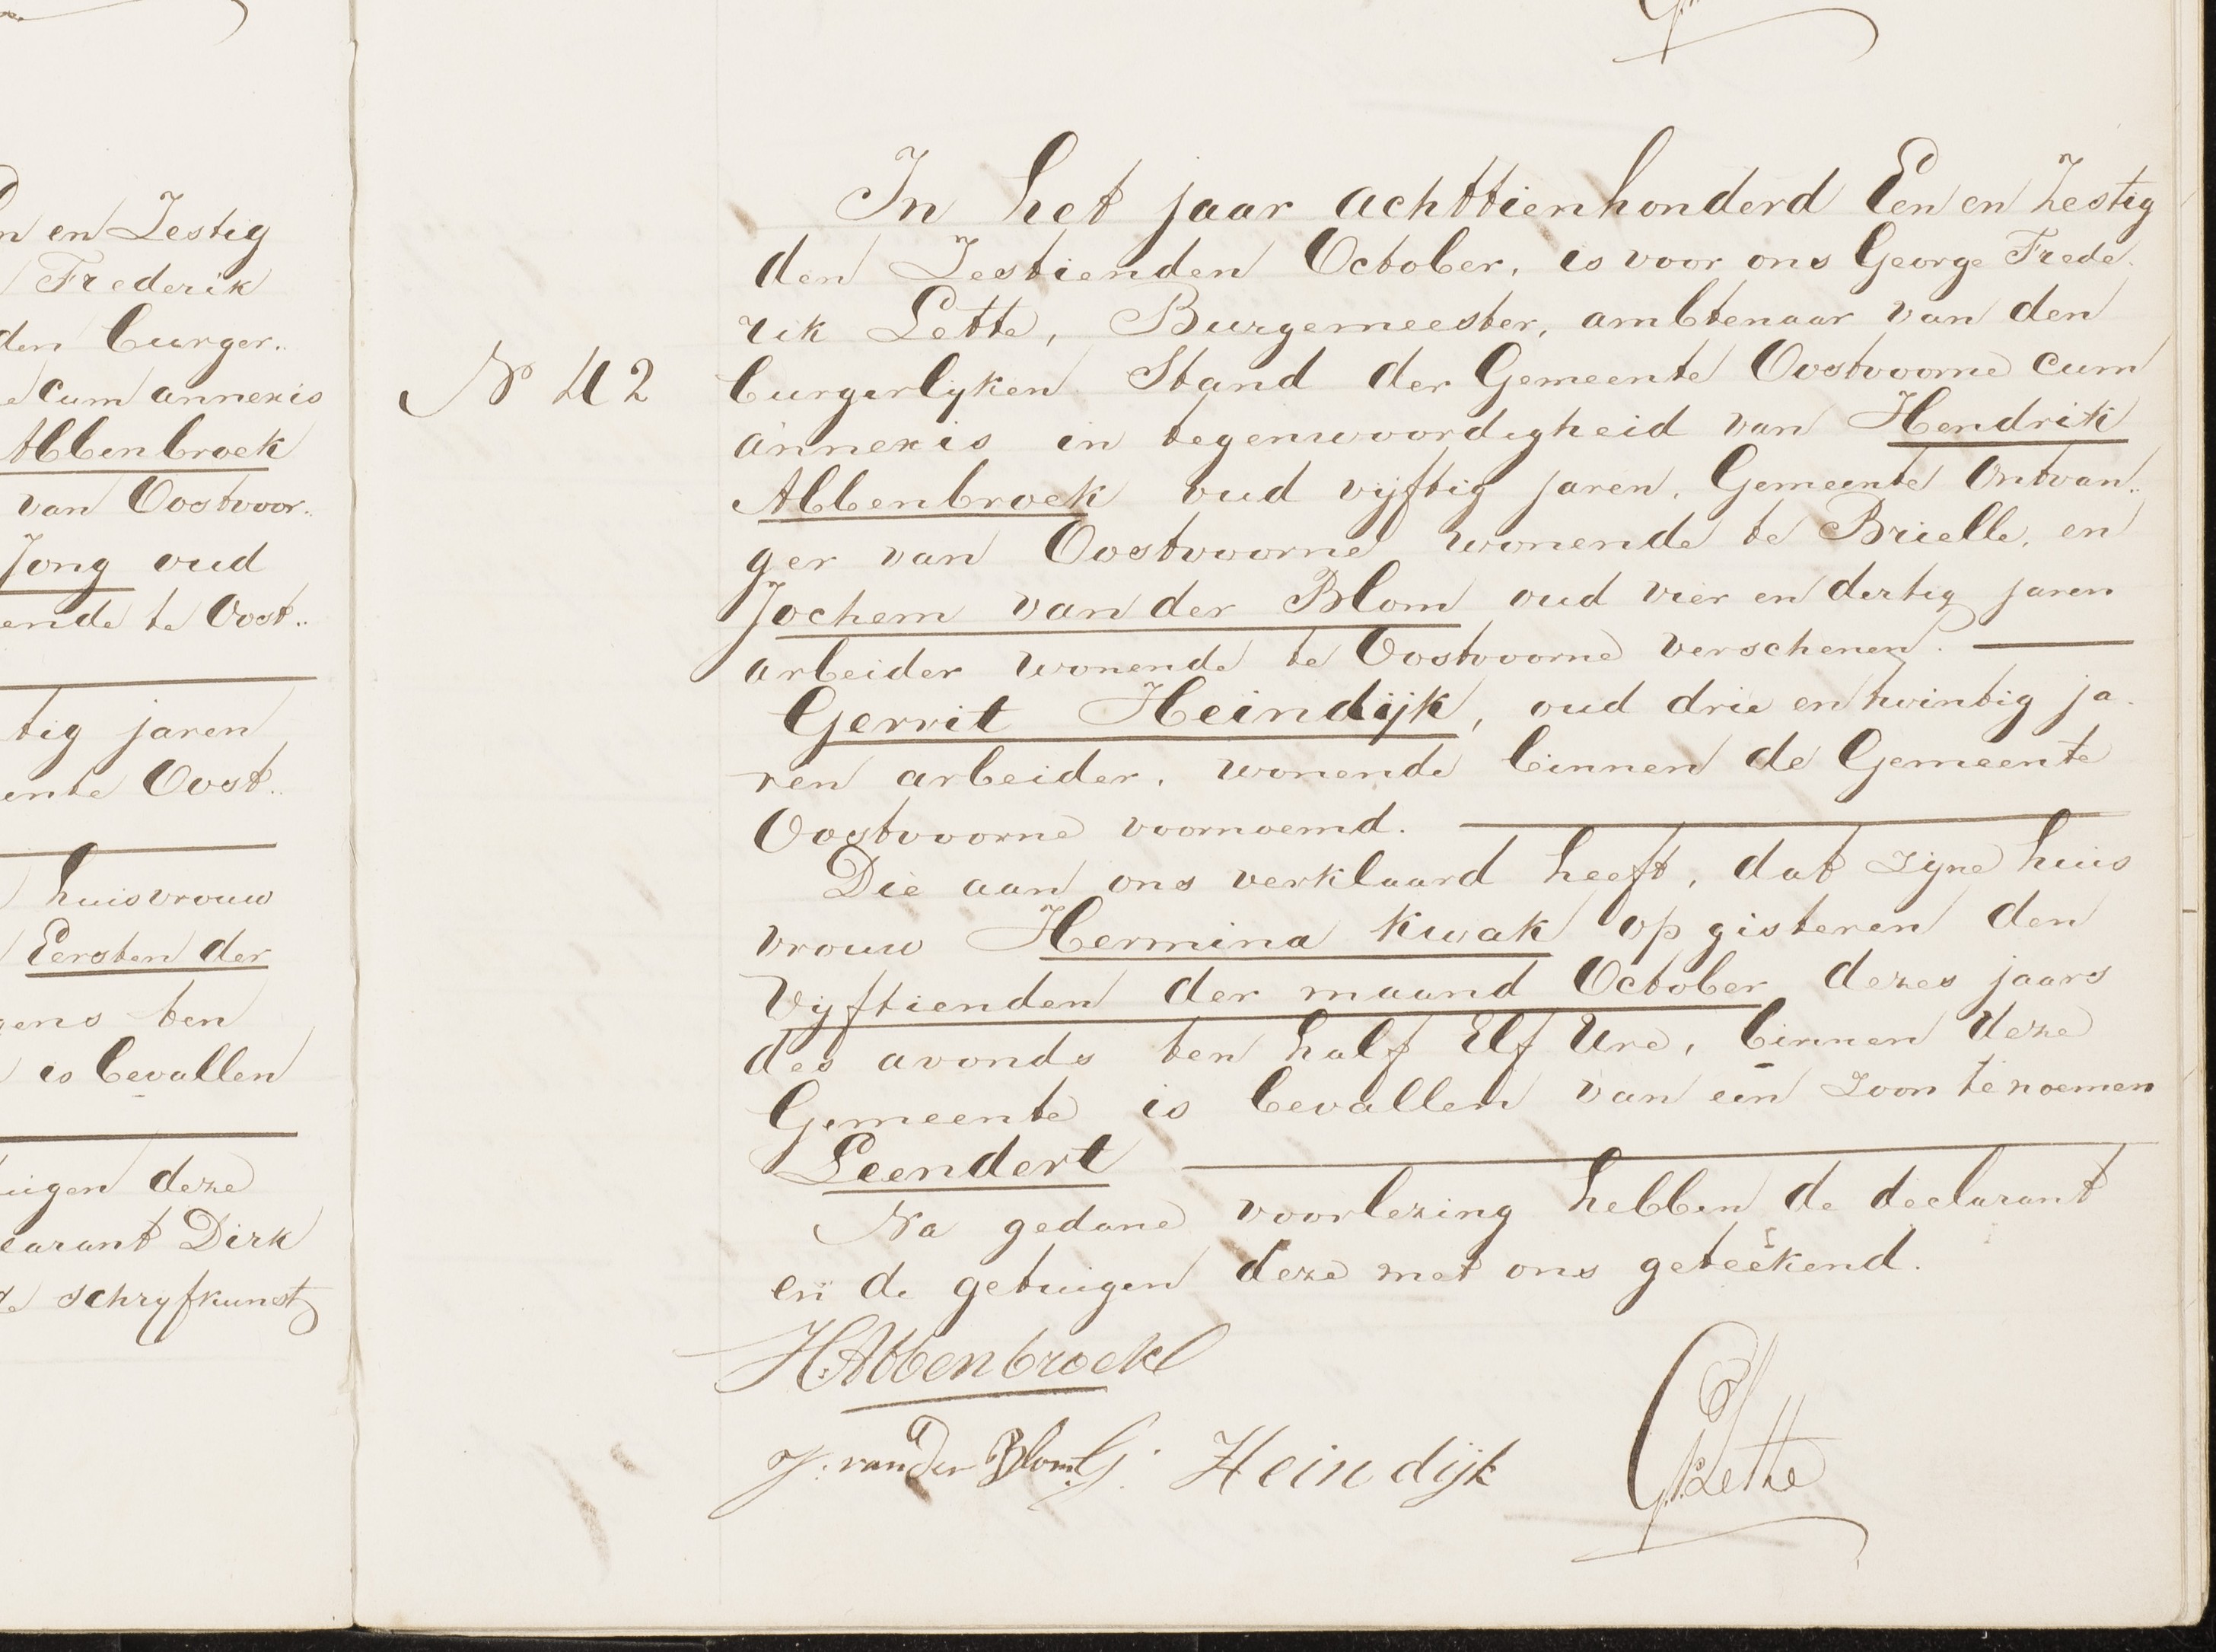 n en Zestig
Frederik
den burger..
e cum annexis
Abbenbroek
van Oostvoor..
Jong oud
ende te Oost..
tig jaren
ente Oost..
huisvrouw
Eersten der
gens ten
is bevallen
uigen deze
earant Dirk
e schryfkunst
In het jaar achttienhonderd Een en Zestig
den Zestienden October, is voor ons George Frede
rik Lette, Burgemeester, ambtenaar van den
N° 42 burgerlyken Stand der Gemeente Oostvoorne cum
annexis in tegenwoordigheid van Hendrik
Abbenbroek oud vyftig jaren, Gemeente Ontvan..
ger van Oostvoorne wonende te Brielle, en
Jochem van der Blom oud vier en dertig jaren
arbeider wonende te Oostvoorne verschenen.
Gerrit Heindijk, oud drie en twintig ja.
ren arbeider, wonende binnen de Gemeente
Oostvoorne voornoemd.
Die aan ons verklaard heeft, dat zijne huis
vrouw Hermina Kwak op gisteren den
Vyftienden der maand October dezes jaars
des avonds ten half Elf Ure, binnen deze
Gemeente is bevallen van een Zoon te noemen
Leendert
Na gedane voorlezing hebben de declarant
en de getuigen deze met ons geteekend.
H. Abbenbroek
J. van der Blom G. Heindijk GFLette